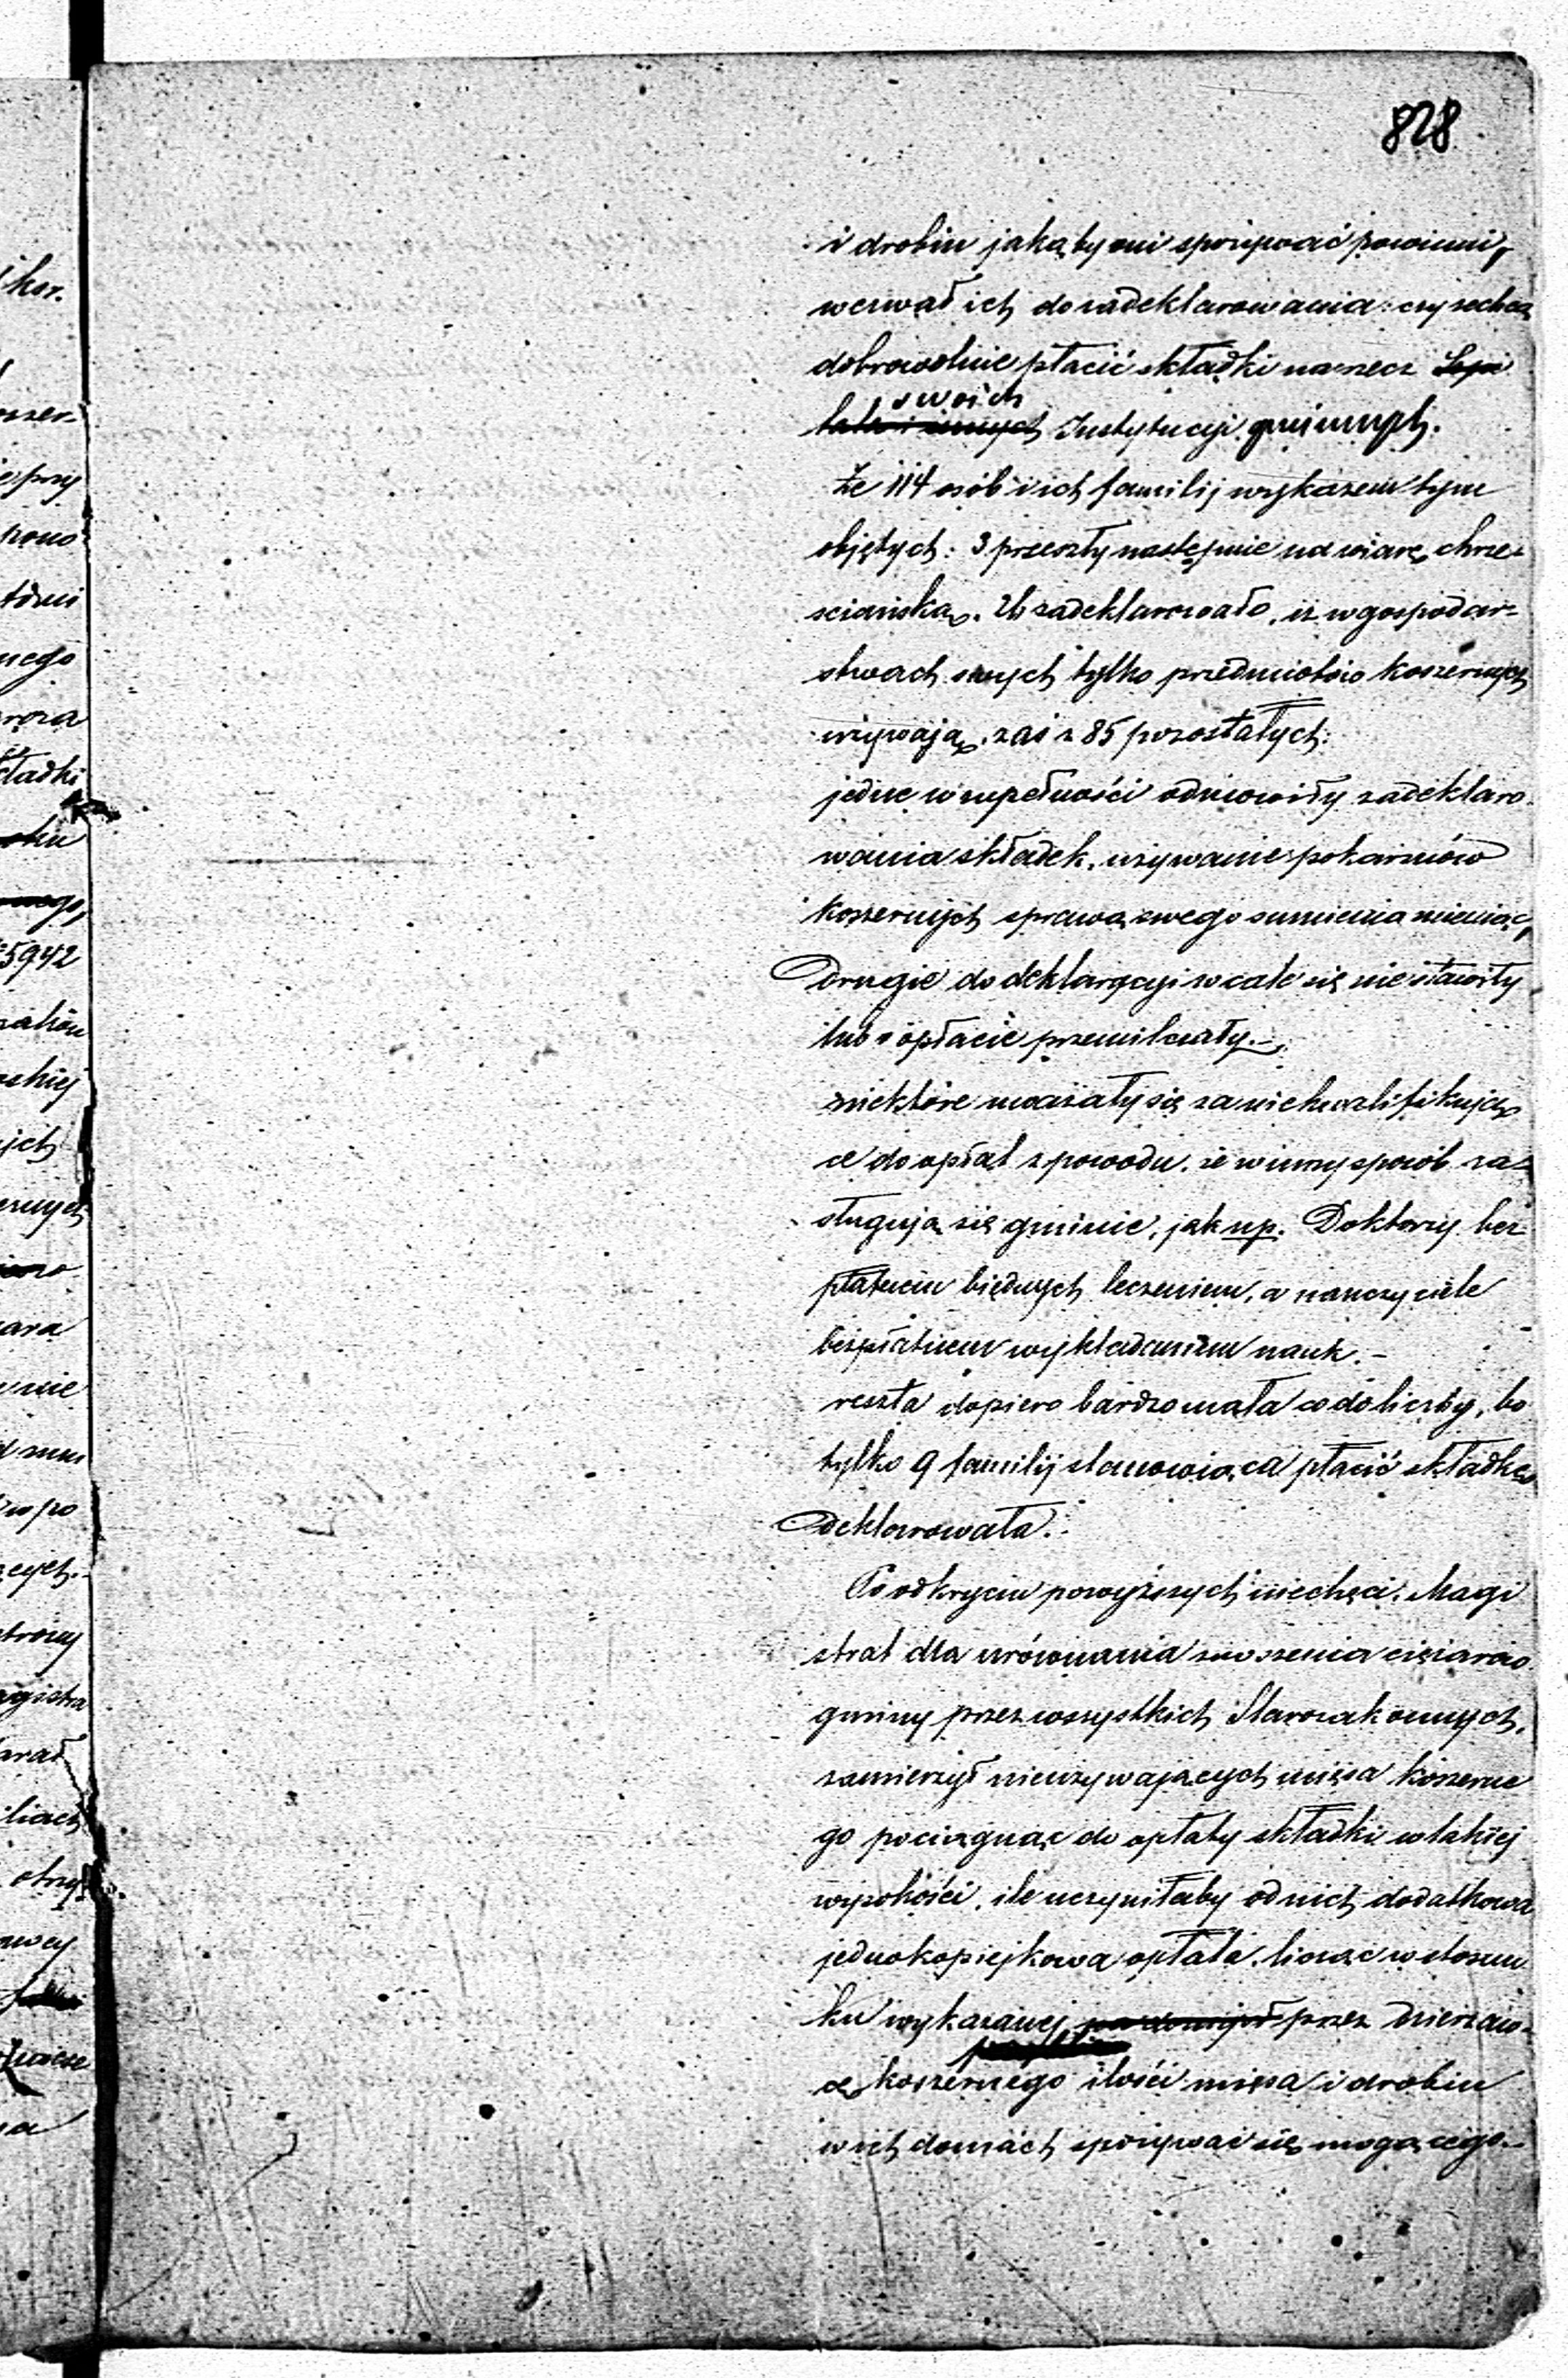 828
i drobiu jakąby oni spożywać powinni,
wezwał ich do zadeklarowania: czy zechcą
dobrowolnie płacić składki na rzecz Szpi
swoich
tala i innych Instytucji gminnych.
Ze 114 osób i ich familij wykazem tym
objętych: 3 przeszły następnie na wiarę chrze-
sciańską. 26 zadeklarowało, iż w gospodar-
stwach swych tylko przedmiotów koszernych
używają, zaś z 85 pozostałych:
jedne w zupełności odmówiły zadeklaro-
wania składek, używanie pokarmów
koszernych sprawą swego sumienia mieniąc,
Drugie do deklaracyi wcale się nie stawiły
lub o opłacie przemilczały.-
niektóre uważały się za niekwalifikują
ce do opłat z powodu, że w inny sposób za-
sługują się gminie, jak np. Doktorzy bez
płatném biédnych leczeniem, a nauczyciele
bezpłatnem wykładaniem nauk.-
reszta dopiero bardzo mała co do liczby, bo
tylko 9 familij stanowiąca płacić składkę
deklarowała.
Po odkryciu powyższych niechęci, Magi
strat dla urównania znoszenia ciężarów
gminy przez wszystkich Starozakonnych,
zamierzył nieużywających mięsa koszerne
go pociągnąć do opłaty składki w takiej
wysokości, ile uczyniłaby od nich dodatkowa
jednokopiejkowa opłata, licząc w stosun
ku wykazanej przez Dzierżaw-
cę koszernego ilości mięsa i drobiu
w ich domach spożywać się mogącego.-
kor.
5942